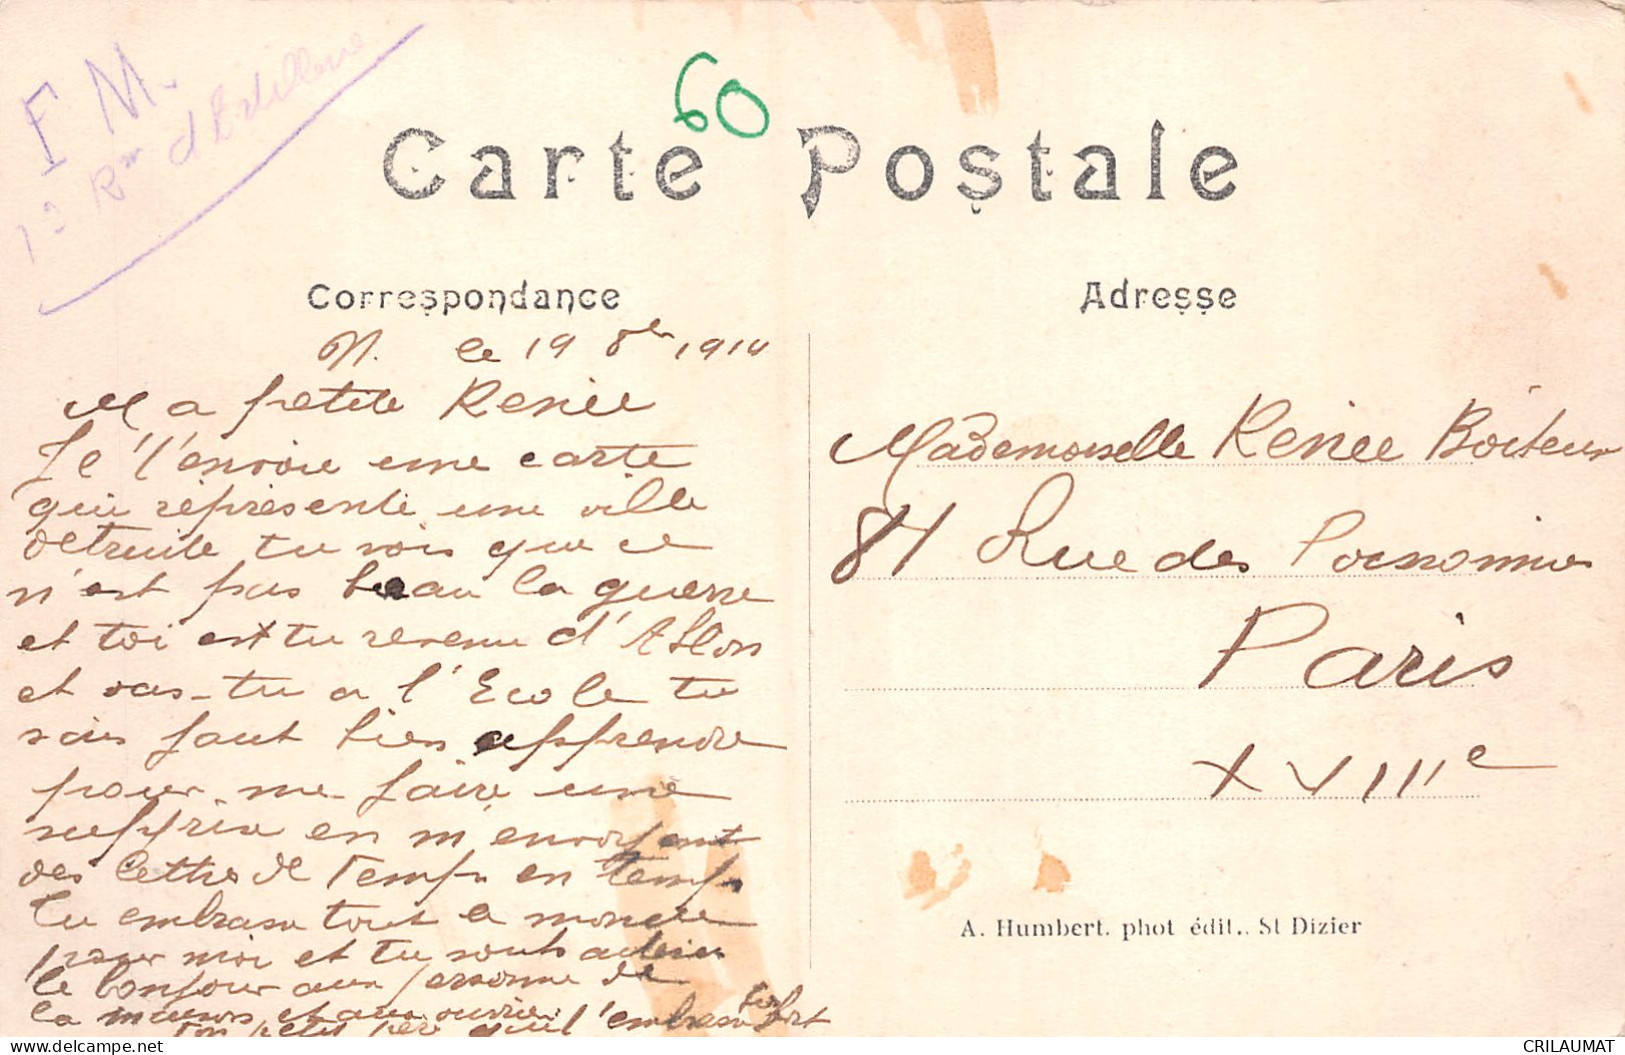 F M.
13 Rm d'Artillerie
60
Carte Postale
Correspondance
Adresse
N. le 19 8bre 1914
Ma petite Renée
Je t'envoie une carte
qui représente une ville
detruite tu vois que ce
n'est pas beau la guerre
et toi est tu revenu d'Ablon
et vas-tu a l'Ecole tu
sais faut bien apprendre
pour me faire une
surprise en m'envoyant
des lettres de Temps en temps
tu embrasse tout le monde
pour moi et tu souhaiteras
le bonjour aux personne de
la maison et aux ouvriers
ton petit père qui t'embrasse bien fort
Mademoiselle Renée Boiteux
84 Rue des Poissonniers
Paris
XVIIIe
A. Humbert. phot édit.. St Dizier
CRILAUMAT